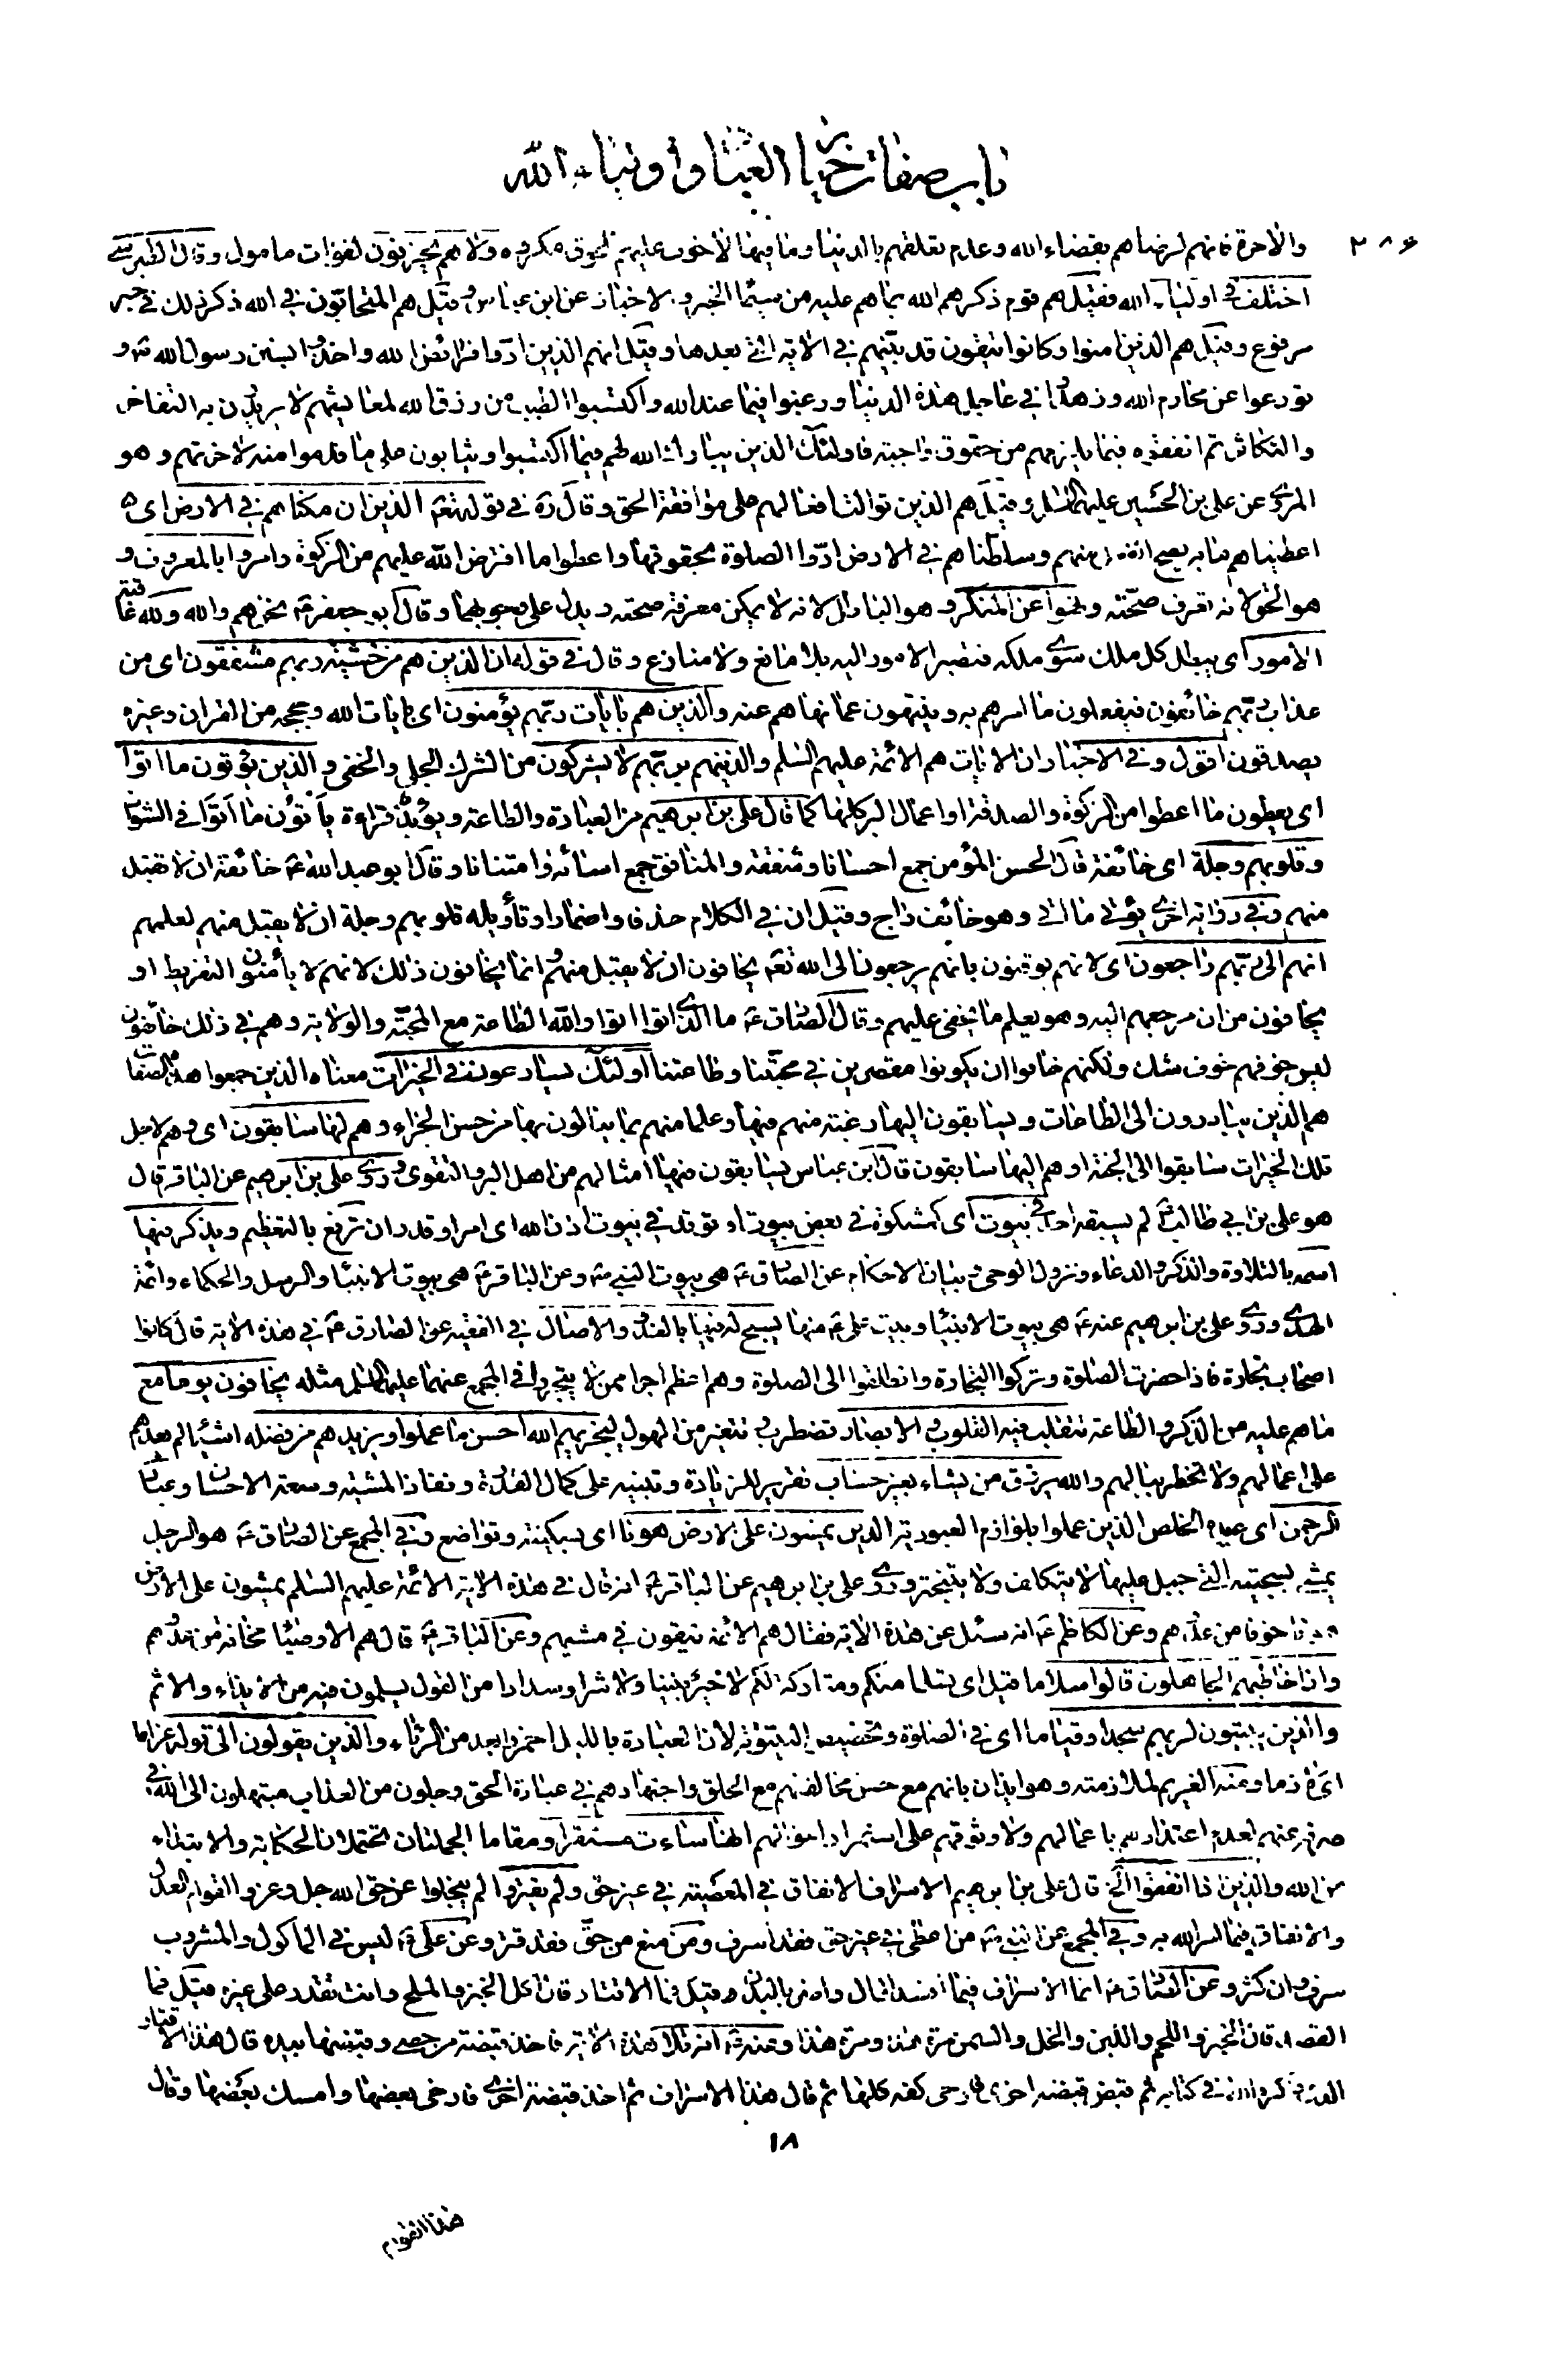 باب صفات خيار العباد وأولياء الله
٢٨۶
والاخرة فانهم لرضاهم بقضاء الله وعدم تعلقهم بالدنيا وما فيها لاخوف عليهم للحوق مكروه ولا هم يحزنون لفوات مامول وقال الطبرسي
اختلف في اولياء الله فقيل هم قوم ذكرهم الله بما هم عليه من سيماء الخير والاخبات عن ابن عباس وقيل هم المتحابون في الله ذكر ذلك في خبر
مرفوع وقيل هم الذين امنوا وكانوا يتقون قد بينهم في الاية التي بعدها وقيل انهم الذين ادوا فرائض الله واخذوا بسنن رسول الله ص و
تورعوا عن محارم الله وزهدوا في عاجل هذه الدنيا ورغبوا فيما عند الله واكتسبوا الطيب من رزق الله لمعايشهم لا يريدون به التفاخر
والتكاثر ثم انفقوه فيما يلزمهم من حقوق واجبة فاولئك الذين يبارك الله لهم فيما اكتسبوا ويثابون على ما قدموا منه لاخرتهم وهو
المروي عن علي بن الحسين عليهما السلم وقيل هم الذين توالت افعالهم على موافقة الحق وقال ره في قوله تعه الذين ان مكناهم في الارض اى
اعطيناهم ما به يصح الفعل منهم وسلطناهم في الارض ادوا الصلوة بحقوقها واعطوا ما افترض الله عليهم من الزكوة وامروا بالمعروف و
هو الحق لانه تعرف صحته ونهوا عن المنكر وهو الباطل لانه لا يمكن معرفة صحته ويدل على وجوبهما وقال ابو جعفر ع نحن هم والله ولله عاقبة
الامور اى يبطل كل ملك سوى ملكه فتصير الامور اليه بلا مانع ولا منازع وقال في قوله ان الذين هم من خشية ربهم مشفقون اى من
عذاب ربهم خائفون فيفعلون ما امرهم به وينتهون عما نهاهم عنه والذين هم بايات ربهم يؤمنون اى بايات الله وحججه من القران وغيره
يصدقون اقول وفي الاخبار ان الايات هم الائمة عليهم السلم والذين هم بربهم لا يشركون من الشرك الجلي والخفي والذين يؤتون ما اتوا
اى يعطون ما اعطوا من الزكوة والصدقة او اعمال البر كلها كما قال علي بن ابرهيم من العبادة والطاعة ويؤيده قراءة يأتون ما اتوا في الشواذ
وقلوبهم وجلة اى خائفة قال الحسن المؤمن جمع احسانا وشفقة والمنافق جمع اسائة وامتنانا وقال ابو عبد الله ع خائفة ان لا تقبل
منهم وفي رواية اخرى يؤتي ما اتى وهو خائف راج وقيل ان في الكلام حذفا واضمارا وتأويله قلوبهم وجلة ان لا يقبل منهم لعلمهم
انهم الى ربهم راجعون اى لانهم يوقنون بانهم يرجعون الى الله تعه يخافون ان لا يقبل منهم وانما يخافون ذلك لانهم لا يأمنون التفريط او
يخافون من ان مرجعهم اليه وهو يعلم ما يخفى عليهم وقال الصادق ع ما الذي اتوا اتوا والله الطاعة مع المحبة والولاية وهم في ذلك خائفون
ليس خوفهم خوف شك ولكنهم خافوا ان يكونوا مقصرين في محبتنا وطاعتنا اولئك يسارعون في الخيرات معناه الذين جمعوا هذه الصفات
هم الذين يبادرون الى الطاعات ويسابقون اليها رغبة منهم فيها وعلما منهم بما ينالون بها من حسن الجزاء وهم لها سابقون اى وهم لاجل
تلك الخيرات سابقوا الى الجنة او هم اليها سابقون قال ابن عباس يسابقون فيها امثالهم من اهل البر والتقوى وروى علي بن ابرهيم عن الباقر قال
هو علي بن ابي طالب ع لم يسبقه احد في بيوت اى كمشكوة في بعض بيوت او توقد في بيوت اذن الله اى امر او قدر ان ترفع بالتعظيم ويذكر فيها
اسمه بالتلاوة والذكر والدعاء ونزول الوحي وبيان الاحكام عن الصادق ع هي بيوت النبي ص وعن الباقر ع هي بيوت الانبياء والرسل والحكماء وائمة
الهدى وروى علي بن ابرهيم عنه ع هي بيوت الانبياء وبيت علي ع منها يسبح له فيها بالغدو والاصال في الفقيه عن الصادق ع في هذه الاية قال كانوا
اصحاب تجارة فاذا حضرت الصلوة وتركوا التجارة وانطلقوا الى الصلوة وهم اعظم اجرا ممن لا يتجر وفي المجمع عنهما عليهما السلم مثله يخافون يوما مع
ما هم عليه من الذكر والطاعة تتقلب فيه القلوب والابصار تضطرب وتتغير من الهول ليجزيهم الله احسن ما عملوا ويزيدهم من فضله اشياء لم يعدهم
على اعمالهم ولا تخطر ببالهم والله يرزق من يشاء بغير حساب تقرير للزيادة وتنبيه على كمال القدرة ونفاذ المشية وسعة الاحسان وعباد
الرحمن اى عباده الخلص الذين عملوا بلوازم العبودية الذين يمشون على الارض هونا اى بسكينة وتواضع وفي المجمع عن الصادق ع هو الرجل
يمشي بسجيته التي جبل عليها لا يتكلف ولا يتبختر وروى علي بن ابرهيم عن الباقر ع انه قال في هذه الاية الائمة عليهم السلم يمشون على الارض
هونا خوفا من عدوهم وعن الكاظم ع انه سئل عن هذه الاية فقال هم الائمة يتقون في مشيهم وعن الباقر ع قال هم الاوصياء مخافة من عدوهم
واذا خاطبهم الجاهلون قالوا سلاما قيل اى تسلما منكم ومتاركة لكم لا خير بيننا ولا شر او سدادا من القول يسلمون فيه من الايذاء والاثم
والذين يبيتون لربهم سجدا وقياما اى في الصلوة وتخصيص البيتوتة لان العبادة بالليل احمز وابعد من الرئاء والذين يقولون الى قوله غراما
اى لازما ومنه الغريم لملازمته وهو ايذان بانهم مع حسن مخالقتهم مع الخلق واجتهادهم في عبادة الحق وجلون من العذاب مبتهلون الى الله في
صرفه عنهم لعدم اعتدادهم باعمالهم ولا وثوقهم على استمرار احوالهم انها ساءت مستقرا ومقاما الجملتان تحتملان الحكاية والابتداء
من الله والذين اذا انفقوا الخ قال علي بن ابرهيم الاسراف الانفاق في المعصية في غير حق ولم يقتروا لم يبخلوا عن حق الله جل وعز والقوام العدل
والانفاق فيما امر الله به وفي المجمع عن النبي ص من اعطى في غير حق فقد اسرف ومن منع من حق فقد قتر وعن علي ع ليس في المأكول والمشروب
سرف وان كثر وعن الصادق ع انما الاسراف فيما افسد المال واضر بالبدن قيل فما الاقتار قال اكل الخبز والملح وانت تقدر على غيره قيل فما
القصد قال الخبز واللحم واللبن والخل والسمن مرة هذا ومرة هذا وعنه ع انه تلا هذه الاية فاخذ قبضة من حصى وقبضها بيده قال هذا الاقتار
الذي ذكره الله في كتابه ثم قبض قبضة اخرى فارخى كفه كلها ثم قال هذا الاسراف ثم اخذ قبضة اخرى فارخى بعضها وامسك بعضها وقال
١٨
هذا القوام